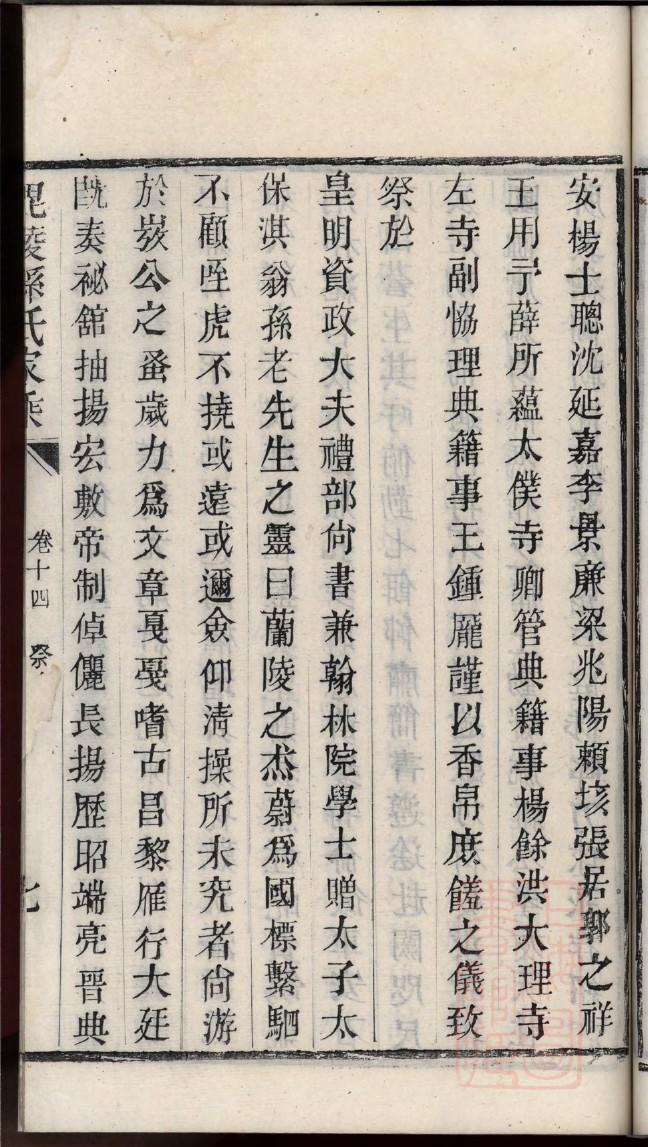 安楊士聰沈延嘉李景廉梁兆陽賴垓張居郭之祥
王用予薛所蘊太僕寺卿管典籍事楊餘洪大理寺
左寺副恊理典籍事王鍾龎謹以香帛庶饈之儀致
祭於
皇明資政大夫禮部尙書兼翰林院學士贈太子太
保淇翁孫老先生之靈曰蘭陵之杰蔚爲國標繫駟
不顧咥虎不撓或遠或邇僉仰淸操所未究者尙游
於埶公之蚤歲力爲文章戛戛嗜古昌黎雁行大廷
旣奏祕舘抽揚宏敷帝制倬儷長揚歷昭端亮晉典
毘陵孫氏家乘 卷十四 祭 七